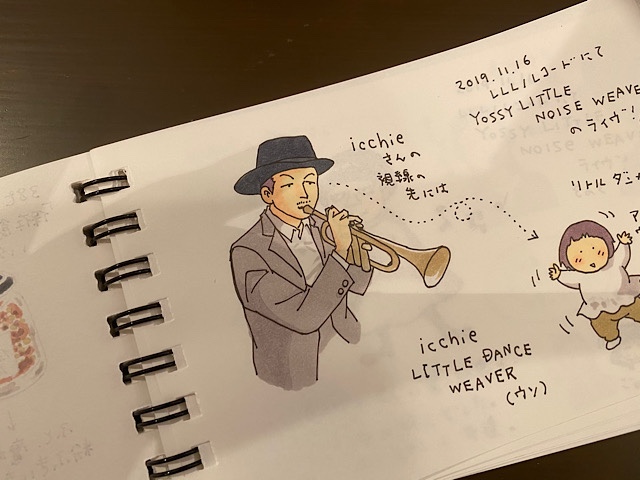 2019.11.16
LLLレコードにて
YOSSY LITTLE
NOISE WEAVER
のライヴ!
icchie
さんの
視線の
先には
リトル ダニ
ア
icchie
LITTLE DANCE
WEAVER
(ウソ)